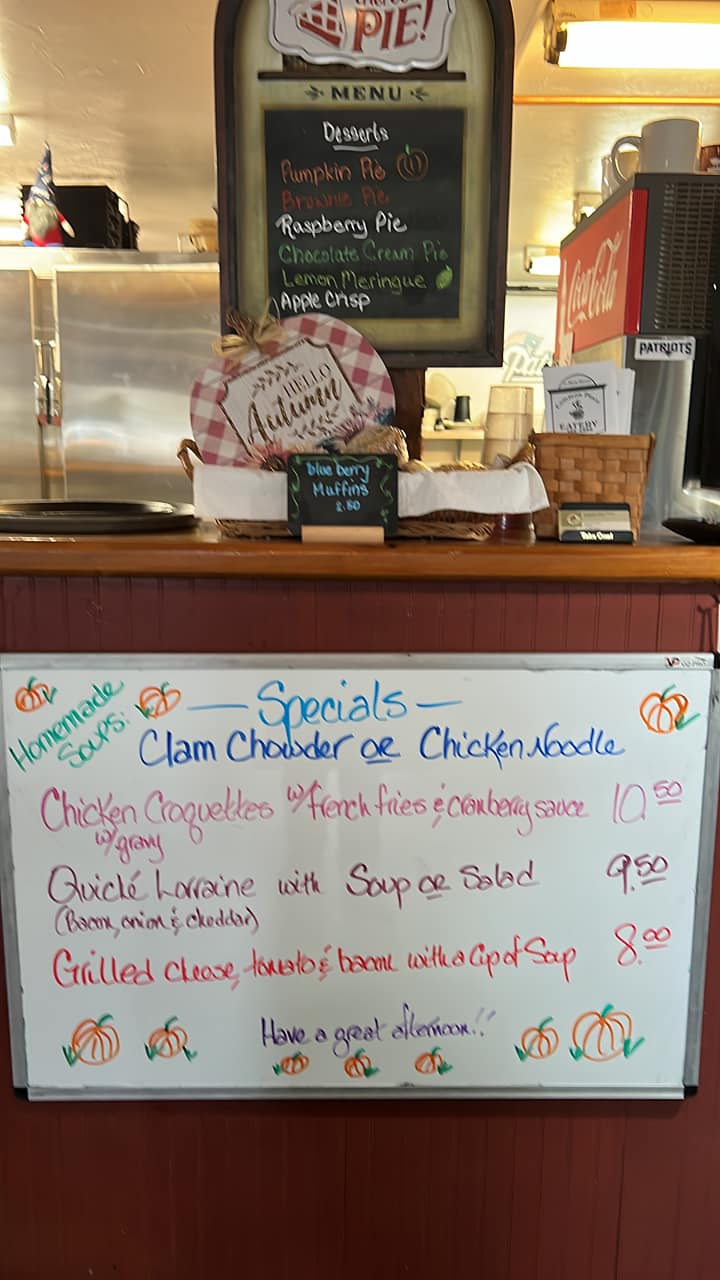 PIE!
MENU
Desserts
Pumpkin Pie
Brownie Pie
Raspberry Pie
Chocolate Cream Pie
Lemon Meringue
Apple Crisp
Coca-Cola
PATRIOTS
Pat
HELLO
Autumn
EATERY
blue berry
Muffins
2.50
Take One!
Homemade
Soups:
— Specials —
Clam Chowder or Chicken Noodle
Chicken Croquettes w/french fries & cranberry sauce 10.50
w/gravy
Quiché Lorraine with Soup or Salad 9.50
(Bacon, onion & cheddar)
Grilled cheese, tomato & bacon with a Cup of Soup 8.00
Have a great afternoon!!